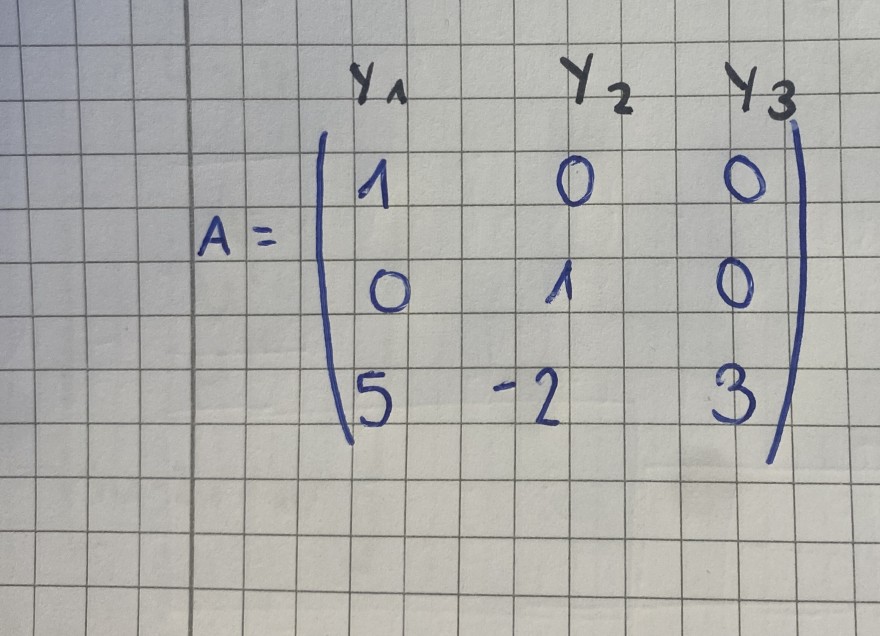 Y1 Y2 Y3
1 0 0
A =
0 1 0
5 -2 3